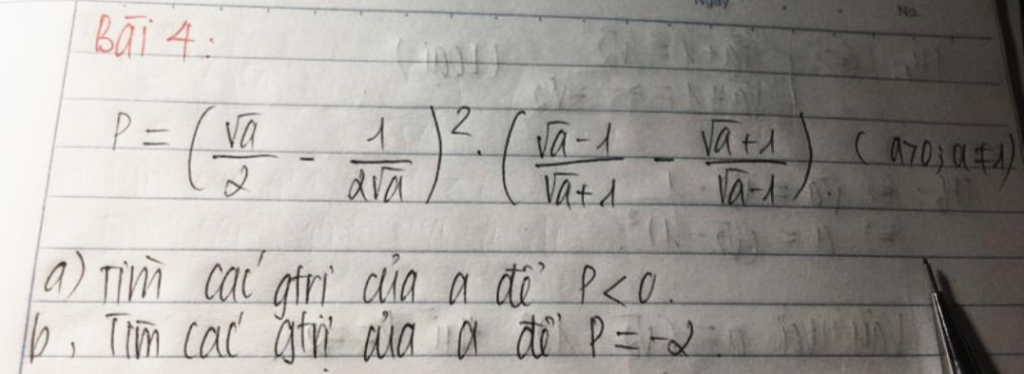 Ngày No.
Bài 4:
P = (√a/2 - 1/2√a)². (√a-1/√a+1 - √a+1/√a-1) (a>0; a≠1)
a) Tìm các gtrị của a để P<0.
b, Tìm các gtrị của a để P=-2.